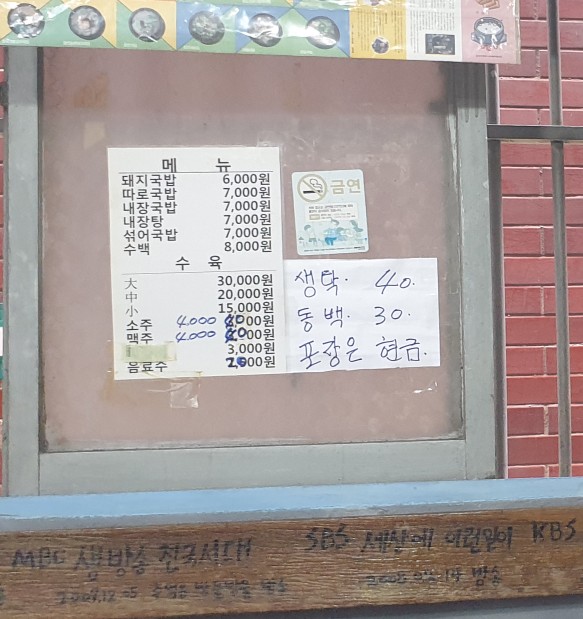 메 뉴
돼지국밥 6,000원
따로국밥 7,000원
내장국밥 7,000원
내장탕 7,000원
섞어국밥 7,000원
수백 8,000원
수 육
大 30,000원
中 20,000원
小 15,000원
소주 4,000 00원
맥주 4,000 00원
3,000원
음료수 00원
금연
생탁. 40.
동백. 30.
포장은 현금.
MBC 생방송 전국시대 SBS 세상에 이런일이 KBS
2007.12.05 방송